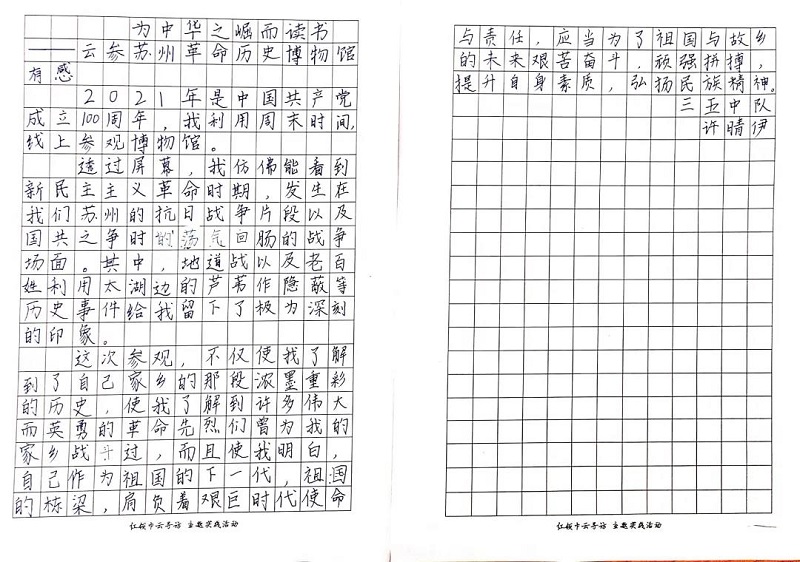 为中华之崛而读书
——云参苏州革命历史博物馆
有感
2021年是中国共产党
成立100周年，我利用周末时间，
线上参观博物馆。
透过屏幕，我仿佛能看到
新民主主义革命时期，发生在
我们苏州的抗日战争片段以及
国共之争时的荡气回肠的战争
场面。其中，地道战以及老百
姓利用太湖边的芦苇作隐蔽等
历史事件给我留下了极为深刻
的印象。
这次参观，不仅使我了解
到了自己家乡的那段浓墨重彩
的历史，使我了解到许多伟大
而英勇的革命先烈们曾为我的
家乡战斗过，而且使我明白，
自己作为祖国的下一代，祖国
的栋梁，肩负着艰巨时代使命
红领巾云寻访 主题实践活动
与责任，应当为了祖国与故乡
的未来艰苦奋斗，顽强拼搏，
提升自身素质，弘扬民族精神。
三五中队
许晴伊
红领巾云寻访 主题实践活动